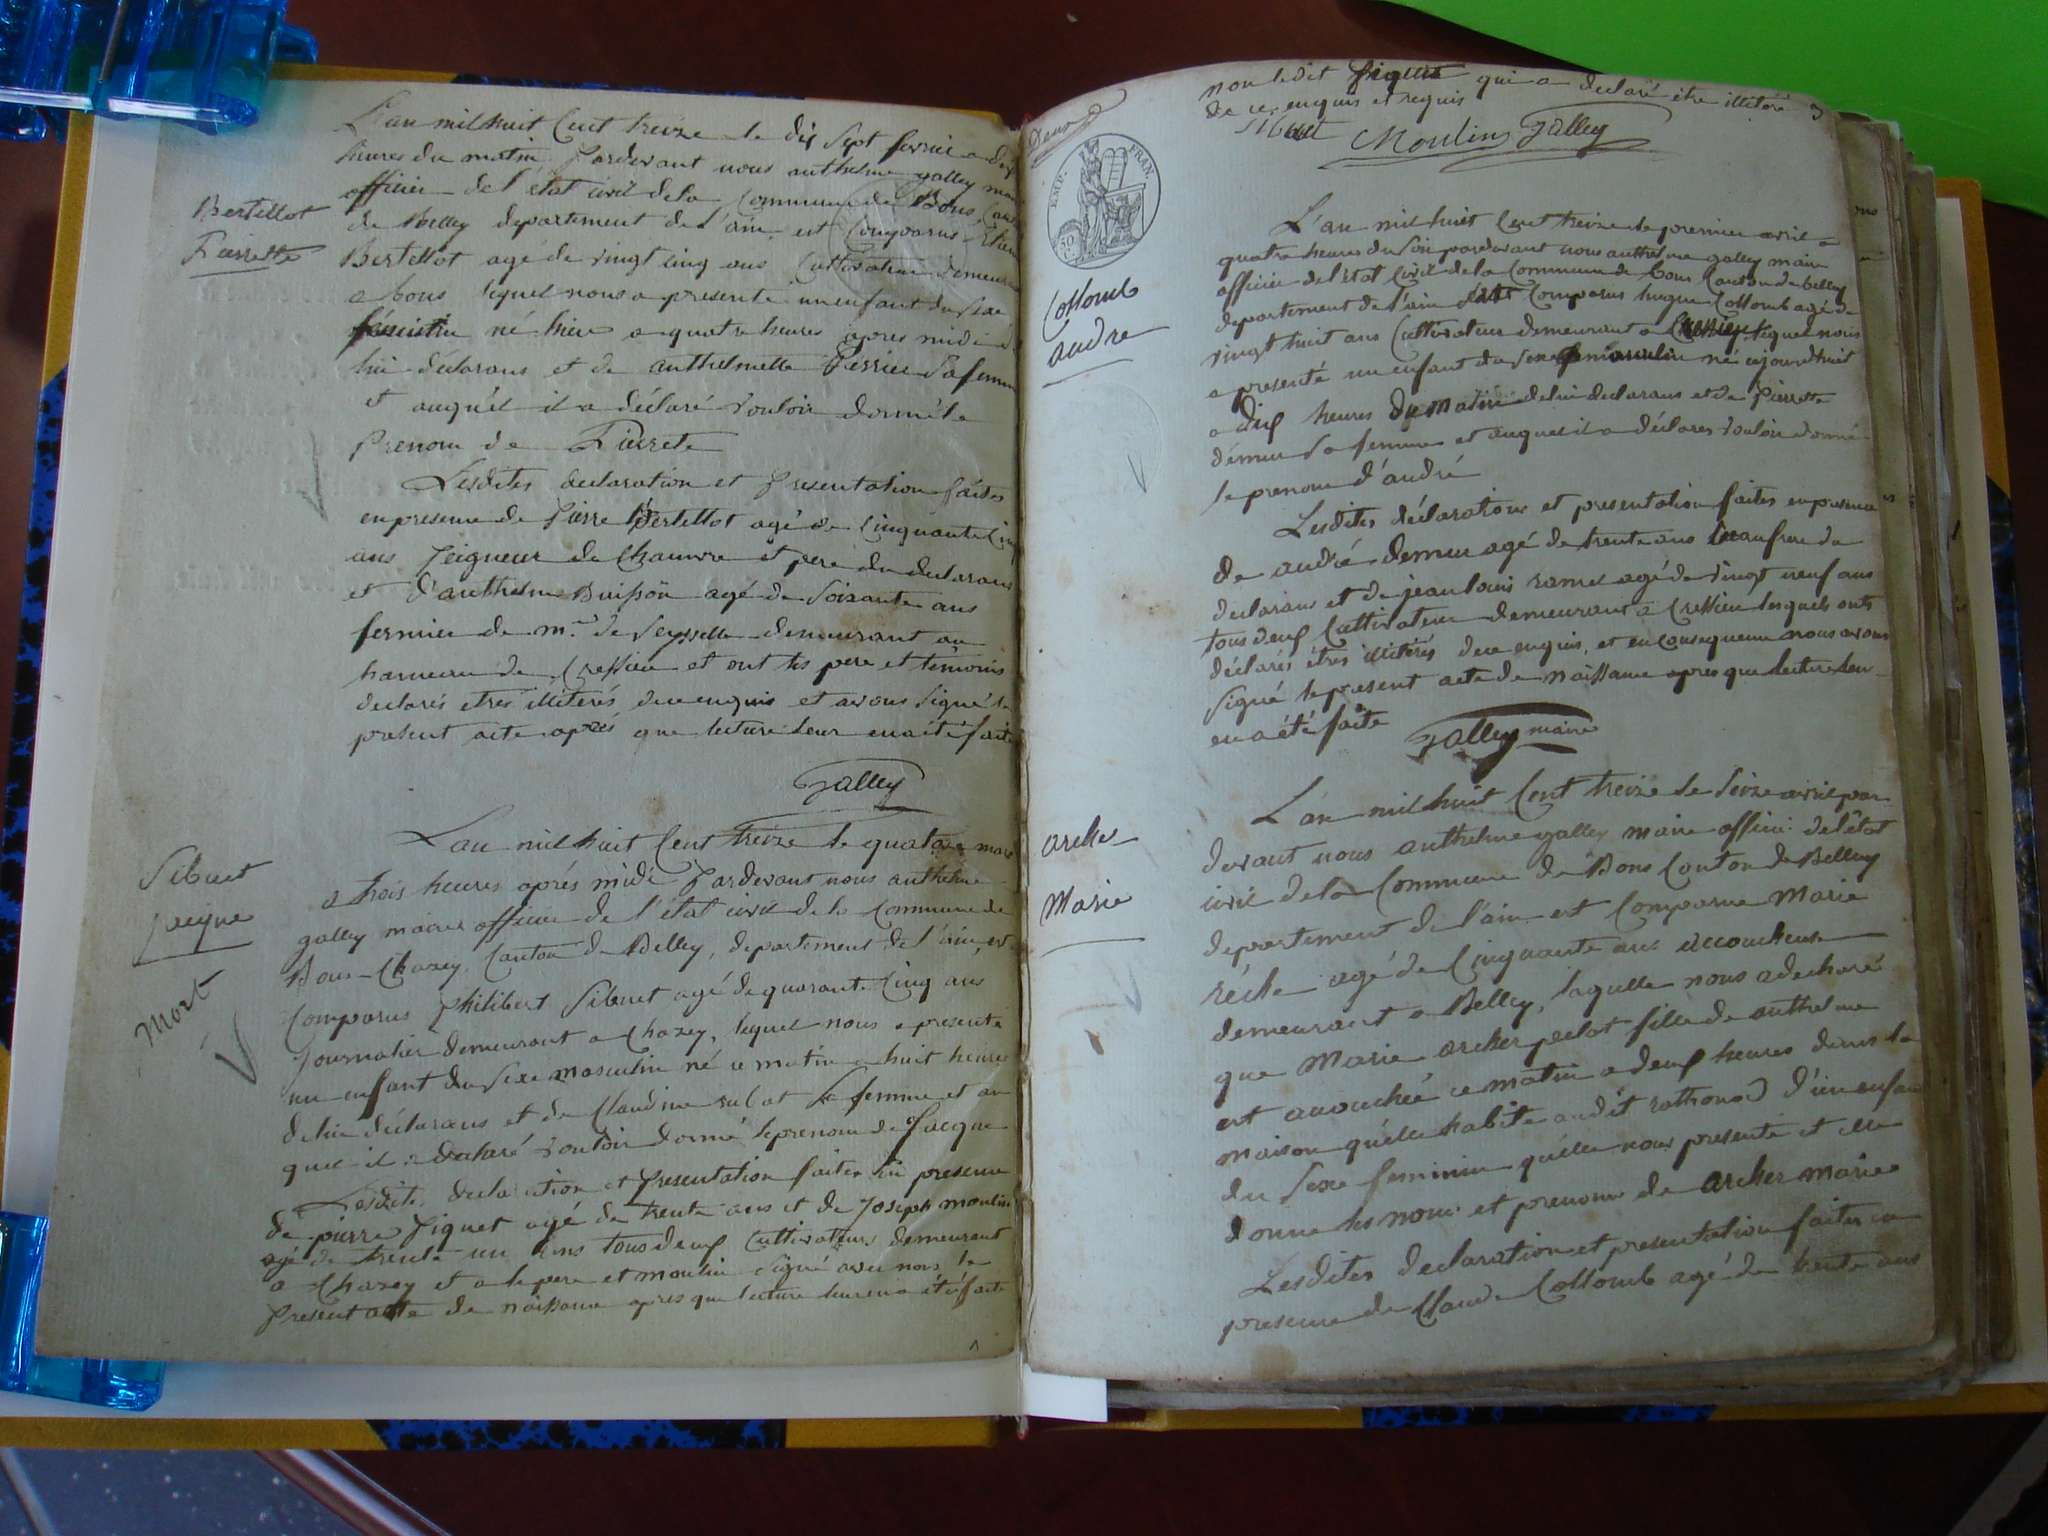 L'an mil huit Cent treize le dix Sept fevrier a dix
heures du matin Pardevant nous anthelme galley mai
officier de l'état civil de la Commune de Bons, Can
de Belley departement de l'ain est Comparus Etien
Bertellot agé de vingt cinq ans Cultivateur demeura
a bons lequel nous a presenté un enfant du Sexe
féminin né hier a quatre heures apres midi d
lui déclarans et de anthelmette Perrier Sa femm
et auquél il a déclaré vouloir donné le
Prenom de Pierrete
Lesdites declaration et Presentation faites
en presence de Pierre Bertellot agé de Cinquante Cinq
ans Peigneur de Chanvre et pere du declarans
et d'anthelme Buisson agé de Soixante ans
fermier de mr. de Seysselle demeurant au
hameau de Cressieu et ont les pere et témoins
declarés etrés illiterés de ce enquis et avons Signé le
present acte aprés que lecture leur en a été faite
Galley
Bertellot
Pierrette
L'an mil huit Cent treize le quatorze mars
a trois heures aprés midi Pardevant nous anthelme
galley maire officier de l'état civil de la Commune de
Bons-Chazey, Canton de Belley, departement de l'ain, est
Comparus Philibert Sibuet agé de quarante Cinq ans
Journalier demeurant a Chazey, lequel nous a presenté
un enfant du Sexe masculin né ce matin a huit heures
de lui déclarans et de Claudine rubat Sa femme et au
quel il a declaré vouloir donné le prenom de Jacque
Lesdites declaration et Presentation faites En presence
de pierre Piquet agé de trente ans et de Joseph moulin
agé de trente un ans tous deux Cultivateurs demeurant
a Chazey et a le pere et moulin Signé avec nous le
Present acte de naissance apres que lecture leur en a été faite
Sibuet
Jacque
Mort
non ledit Piquet qui a declaré être illiteré
de ce enquis et requis
3
Moulin Galley
Deux
EMP. FRAN.
50 C.
L'an mil huit Cent treize le premier avril a
quatre heures du Soir pardevant nous anthelme galley maire
officier de l'état Civil de la Commune de bons Canton de belley
departement de l'ain est Comparus hugue Collomb agé de
vingt huit ans Cultivateur demeurant a Cressieu, lequel nous
a presenté un enfant du Sexe masculin né aujourdhuit
a dix heures du matin de lui declarans et de Pierrette
démeur Sa femme et auquel il a déclarer vouloir donné
le prenom d'andré
Lesdites déclarations et presentation faites en presence
de andré demeur agé de trente ans beaufrere du
declarans et de jean louis ramel agé de vingt neuf ans
tous deux Cultivateur demeurant a Cressieu lesquels ont
déclarés êtres illitérés de ce enquis, et en Consequence nous avons
Signé le present acte de naissance apres que lecture leur
en a été faite
Galley maire
Collomb
andre
L'an mil huit Cent treize le Seize avril par
devant nous anthelme galley maire officier de l'état
civil de la Commune de Bons Canton de Belley
departement de l'ain est Comparue Marie
réche agé de Cinquante ans accoucheuse
demeurant a Belley, laquelle nous a decharé
que Marie archer pelot fille de anthelme
est accouchée ce matin a deux heures dans la
maison quélle habite audit rothonod d'un enfan
du Sexe feminin quélle nous presente et elle
donne les nom et prenoms de archer marie
Lesdites declaration et presentation faites en
presence de Claude Collomb agé de trente ans
archer
Marie